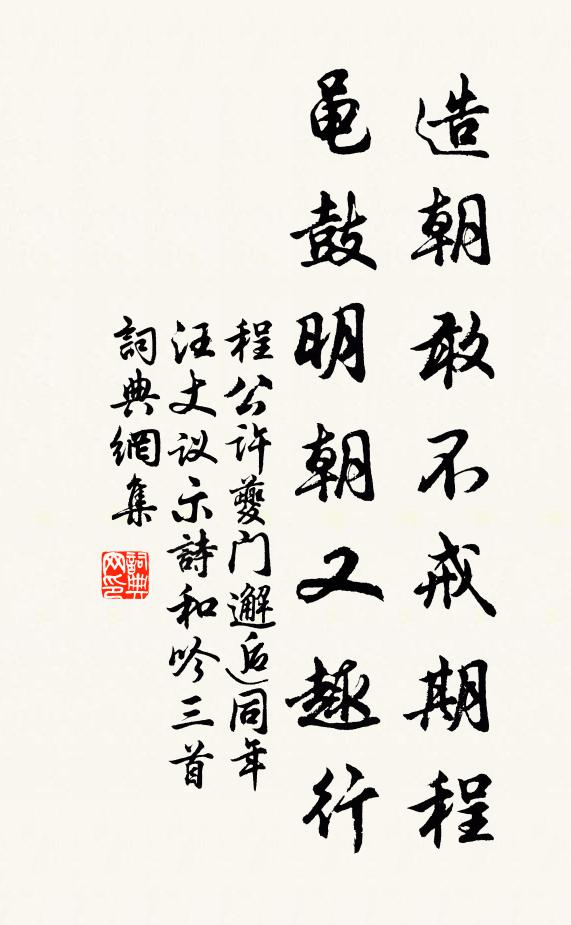 造朝敢不戒期程
黾鼓明朝又趣行
程公许夔门邂逅同年
汪丈议示詩和吟三首
詞典網集
詞典
网印